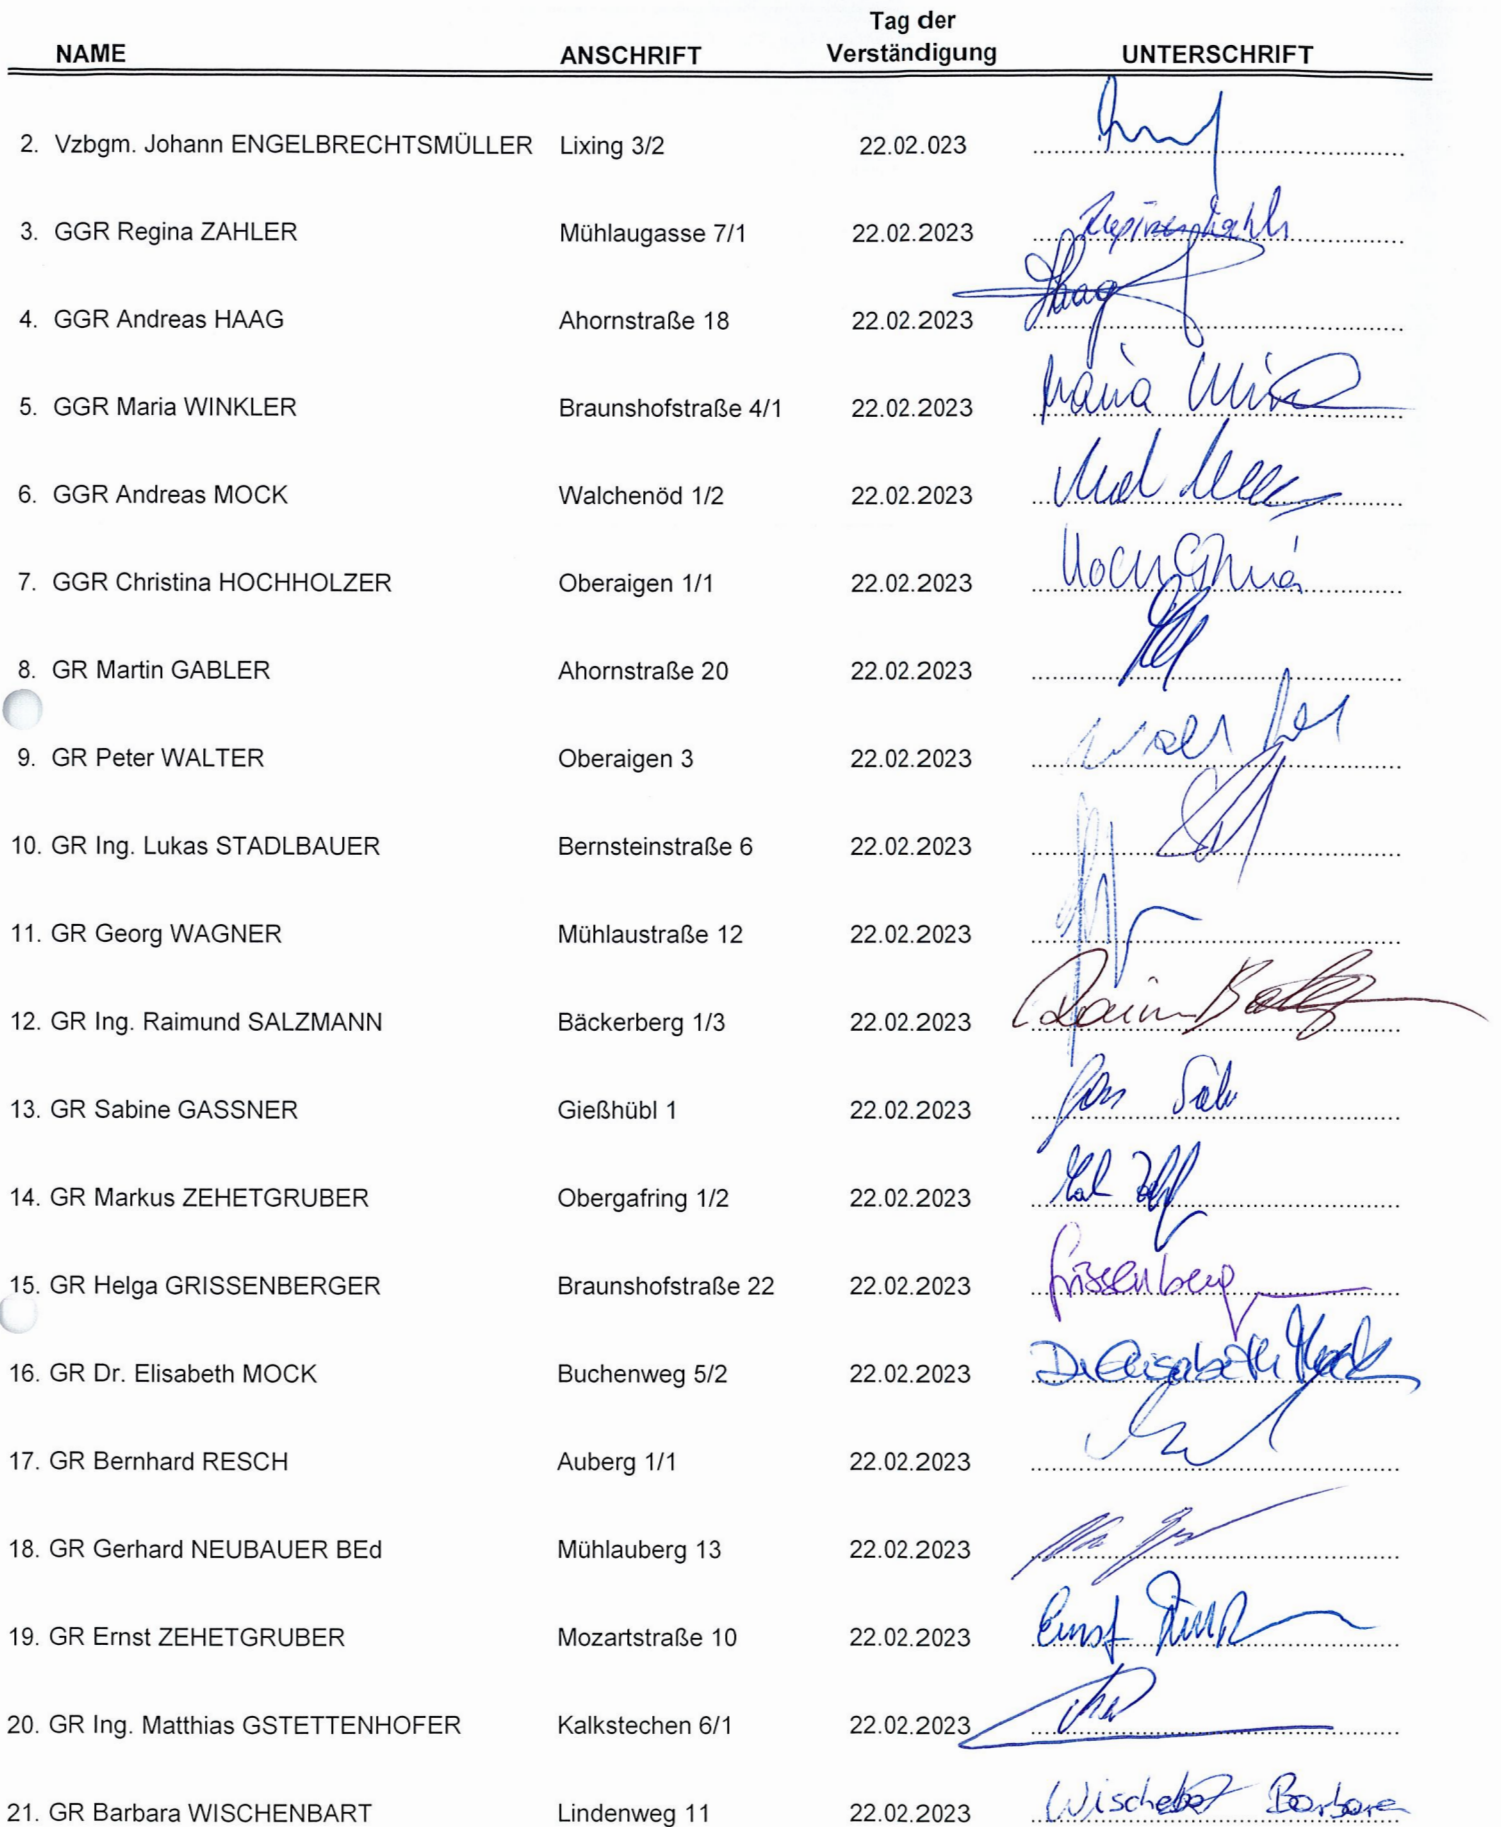 Tag der
NAME ANSCHRIFT Verständigung UNTERSCHRIFT
2. Vzbgm. Johann ENGELBRECHTSMÜLLER Lixing 3/2 22.02.023
3. GGR Regina ZAHLER Mühlaugasse 7/1 22.02.2023
4. GGR Andreas HAAG Ahornstraße 18 22.02.2023 Haag
5. GGR Maria WINKLER Braunshofstraße 4/1 22.02.2023 Maria
6. GGR Andreas MOCK Walchenöd 1/2 22.02.2023
7. GGR Christina HOCHHOLZER Oberaigen 1/1 22.02.2023
8. GR Martin GABLER Ahornstraße 20 22.02.2023
9. GR Peter WALTER Oberaigen 3 22.02.2023
10. GR Ing. Lukas STADLBAUER Bernsteinstraße 6 22.02.2023
11. GR Georg WAGNER Mühlaustraße 12 22.02.2023
12. GR Ing. Raimund SALZMANN Bäckerberg 1/3 22.02.2023
13. GR Sabine GASSNER Gießhübl 1 22.02.2023
14. GR Markus ZEHETGRUBER Obergafring 1/2 22.02.2023
15. GR Helga GRISSENBERGER Braunshofstraße 22 22.02.2023
16. GR Dr. Elisabeth MOCK Buchenweg 5/2 22.02.2023 Dr Elisabeth Mock
17. GR Bernhard RESCH Auberg 1/1 22.02.2023
18. GR Gerhard NEUBAUER BEd Mühlauberg 13 22.02.2023
19. GR Ernst ZEHETGRUBER Mozartstraße 10 22.02.2023 Ernst
20. GR Ing. Matthias GSTETTENHOFER Kalkstechen 6/1 22.02.2023
21. GR Barbara WISCHENBART Lindenweg 11 22.02.2023 Barbara